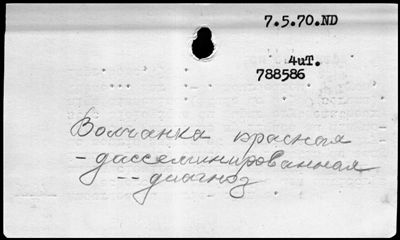 7.5.70.ND
4иТ.
788586
Волчанка красная
- диссеминированная
-- диагноз